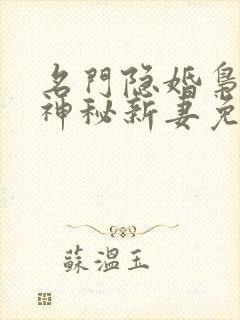 名門隐婚梟
神秘新妻免
蘇溫玉